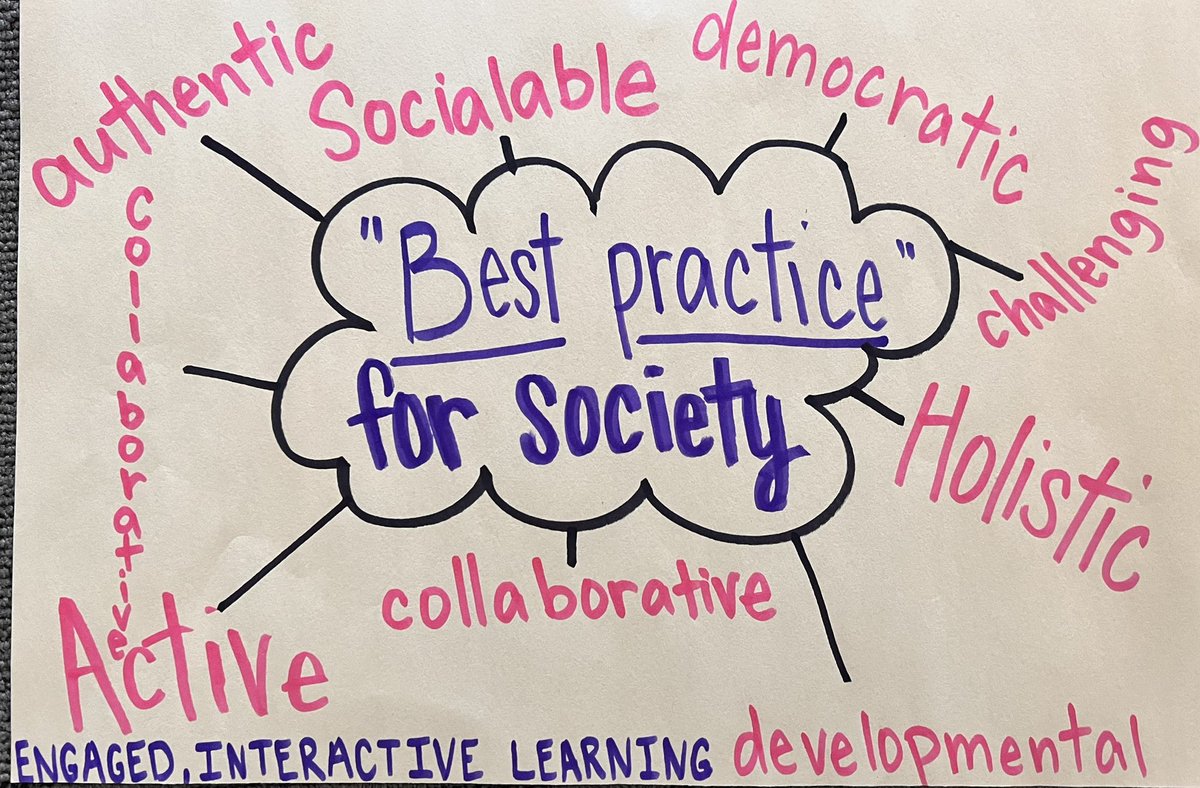 authentic
Socialable
democratic
challenging
collaborative
"Best practice"
for society
Holistic
collaborative
Active
ENGAGED, INTERACTIVE LEARNING
developmental